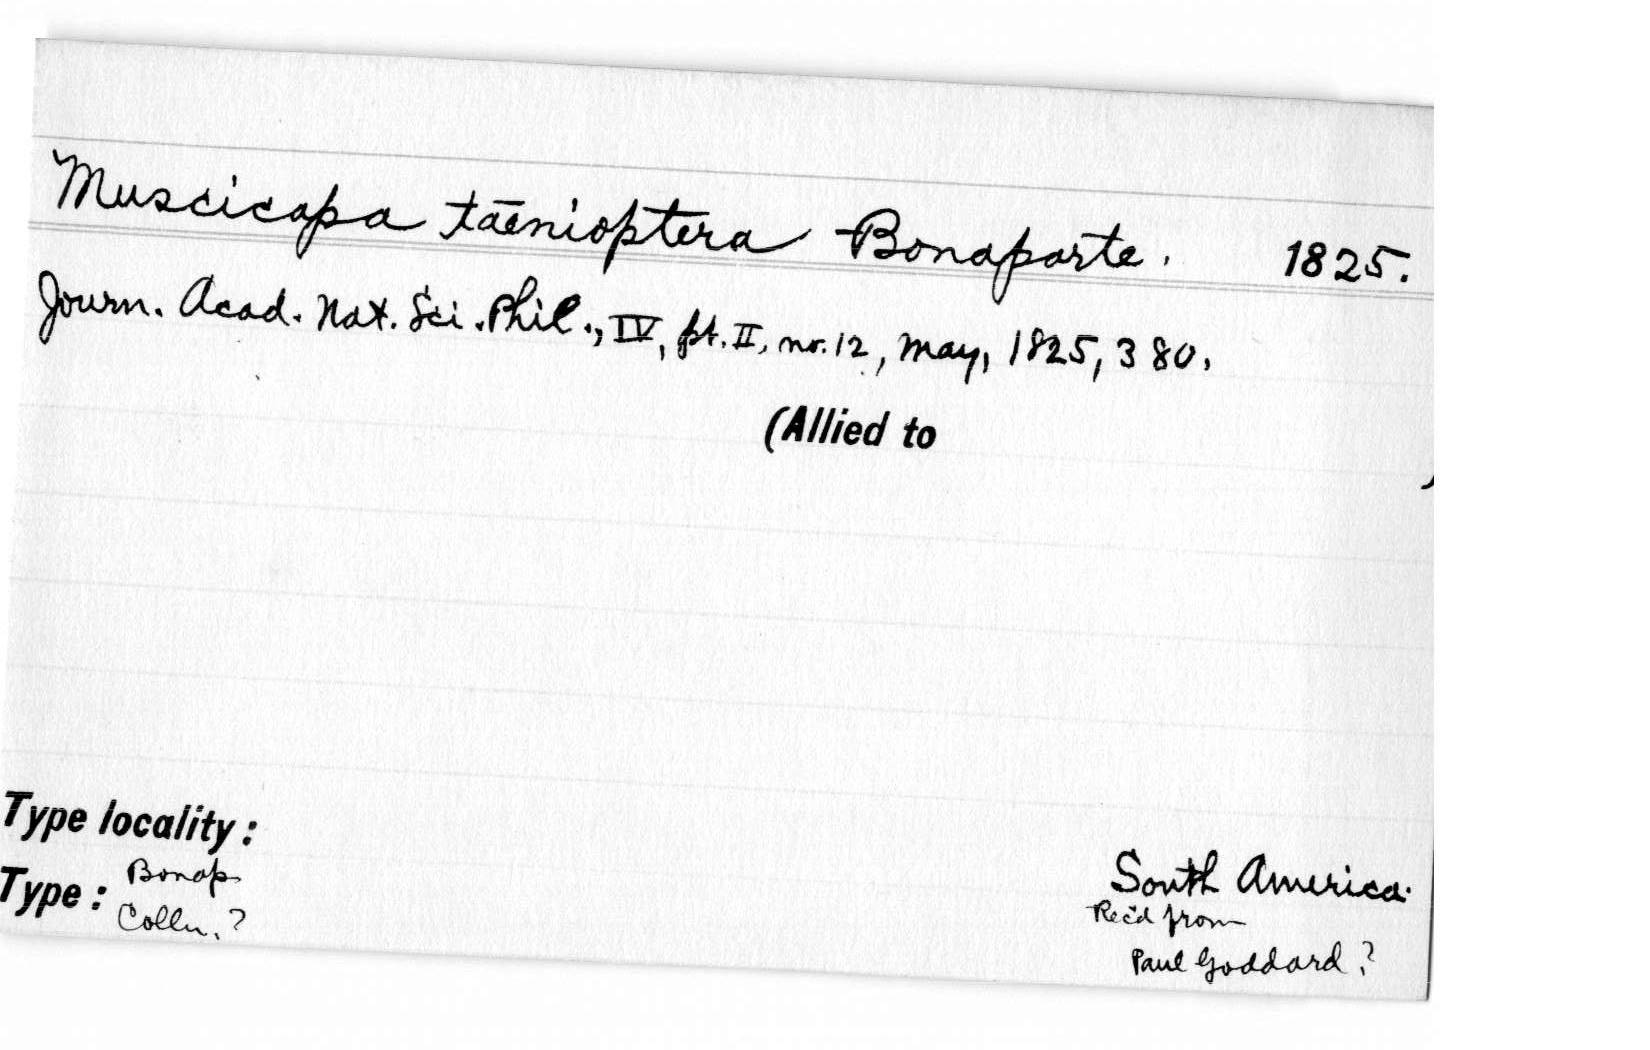 Muscicapa taēnioptera Bonaparte. 1825.
Journ. Acad. Nat. Sci. Phil., IV, pt. II, no. 12, May, 1825, 380.
(Allied to )
Type locality:
South America.
Type: Bonap.
Colln. ?
Rec'd from
Paul Goddard ?